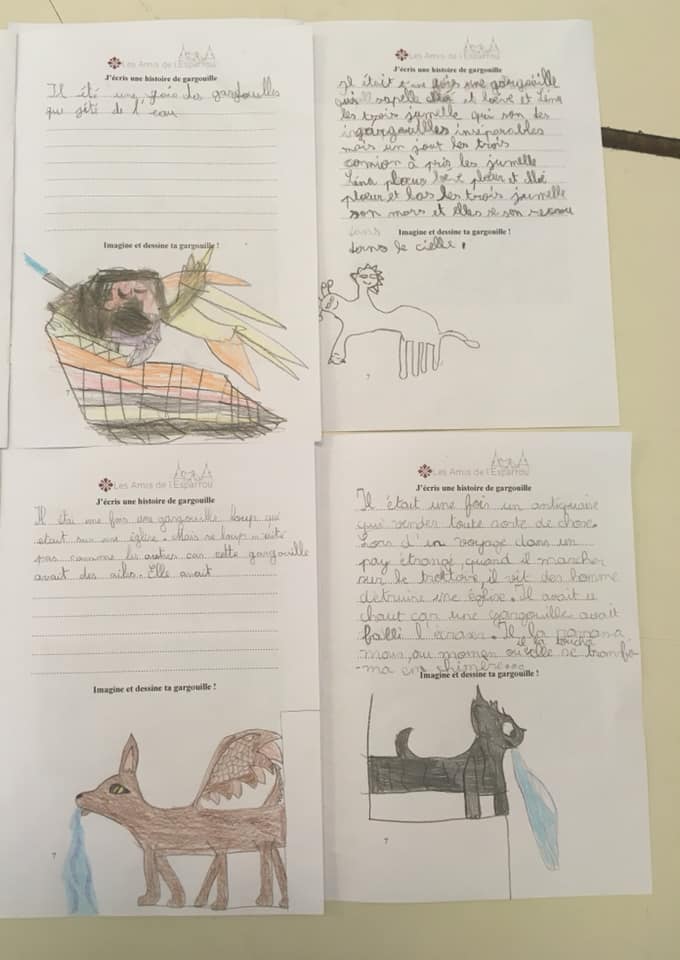 Les Amis de l'Esparrou
J'écris une histoire de gargouille
Il été une fois des gargouilles
qui gété de l' eau
Imagine et dessine ta gargouille !
7
Les Amis de l'Esparrou
J'écris une histoire de gargouille
Il était une fois une gargouille
qui sapelle et loève et Léna
les trois jumelle qui son des
gargouilles inséparables
mais un jour les trois
comion à pris les jumelle
Léna plœurs plœur et
plœur et bas les trois jumelle
son mors et elles se son
Imagine et dessine ta gargouille !
dans le cielle !
7
Les Amis de l'Esparrou
J'écris une histoire de gargouille
Il étai une fois une gargouille loup qui
etait sur une église. Mais se loup n'été
pas comme les autres car cette gargouille
avait des ailes. Elle avait
Imagine et dessine ta gargouille !
7
Les Amis de l'Esparrou
J'écris une histoire de gargouille
Il était une fois un antiquaire
qui vender toute sorte de chose.
Lors d'un voyage dans un
pay étrangé, quand il marcher
sur le trottoire, il vit des homme
détruire une église. Il avait u
chaut car une gargouille avait
falli l'écraser. Il la
il la toucha
mais, au momen ou elle se transfo
-ma en chimère...
Imagine et dessine ta gargouille !
7